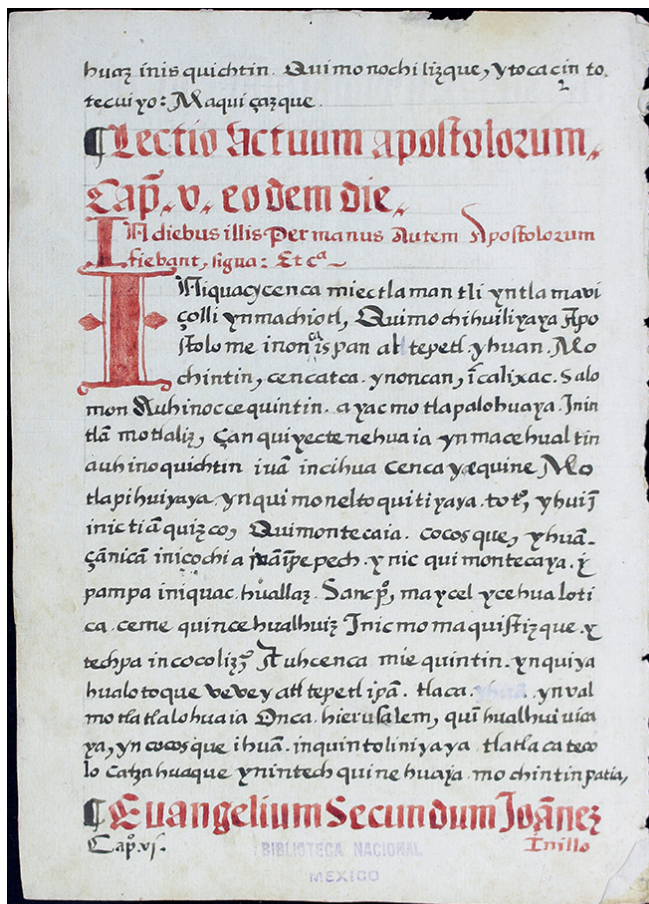 huaz inis quichtin. Quimo nochi lizque, ytoca cin to-
tecuiyo: Maqui çazque.
¶ Lectio Actuum apostolorum.
Cap. v. eodem die.
IN diebus illis. Per manus Autem Apostolorum
fiebant, signa: Et cª
INiquac ycenca miectlaman tli yntlamavi
çolli ynmachiotl, Quimo chihuiliyaya Apo
stolome inon ca is pan altepetl. yhuan. Mo
chintin, cencatca. ynoncan, i calixac. Salo
mon Auh inoc cequintin. ayac motlapalohuaya. Inin
tlã motlaliz, Çan quiyectenehuaia yn macehualtin
auh inoquichtin ivã incihua Cenca yequine Mo
tlapihuiyaya. ynquimoneltoquitiyaya. tot°, yhuij
inic tiãquizco, Quimontecaia. cocosque, yhuã-
çãnicã inicochia pepech. ynic quimontecaya. y
pampa iniquac. huallaz. Sanc p°, maycel ycehualoti
ca. ceme quincehualhuiz Inic momaquistizque. y
techpa incocoliz Auhcenca miequintin. ynquiya
hualotoque vevey altepetl ipã. tlaca. yhuã. ynval
motlatlalohuaia Onca. hierusalem, quihualhuivica
ya, yn cocosque ihuã. inquintoliniyaya. tlatlacateco
lo Catzahuaque ynintech quinehuaya. mochintin patia,
¶ Euangelium Secundum Joãnez
Cap. vj. Inillo
BIBLIOTECA NACIONAL
MEXICO